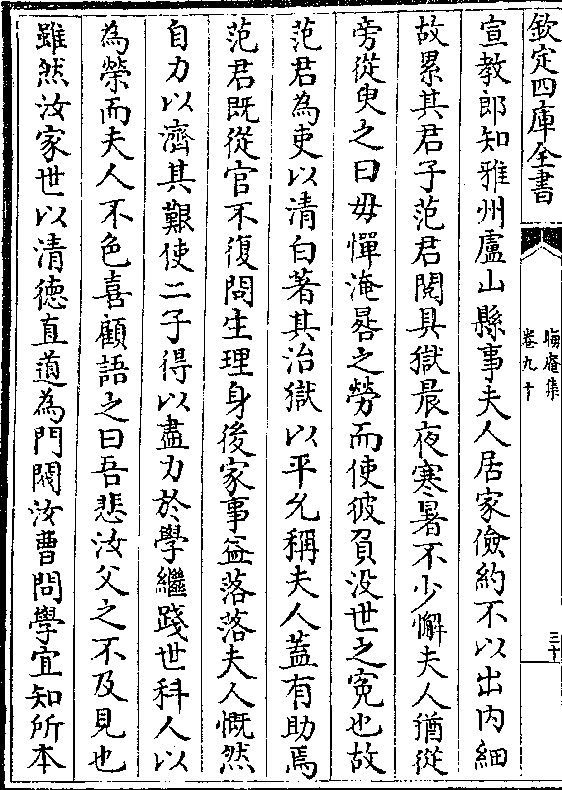 欽定四庫全書
晦庵集
卷九十
三十
宣教郎知雅州盧山縣事夫人居家儉約不以出內細
故累其君子范君閱具獄晨夜寒暑不少懈夫人猶從
旁從臾之曰毋憚淹晷之勞而使彼負没世之寃也故
范君為吏以清白著其治獄以平允稱夫人蓋有助焉
范君既從官不復問生理身後家事益落落夫人慨然
自力以濟其艱使二子得以盡力於學繼踐世科人以
為榮而夫人不色喜顧語之曰吾悲汝父之不及見也
雖然汝家世以清德直道為門閥汝曹問學宜知所本